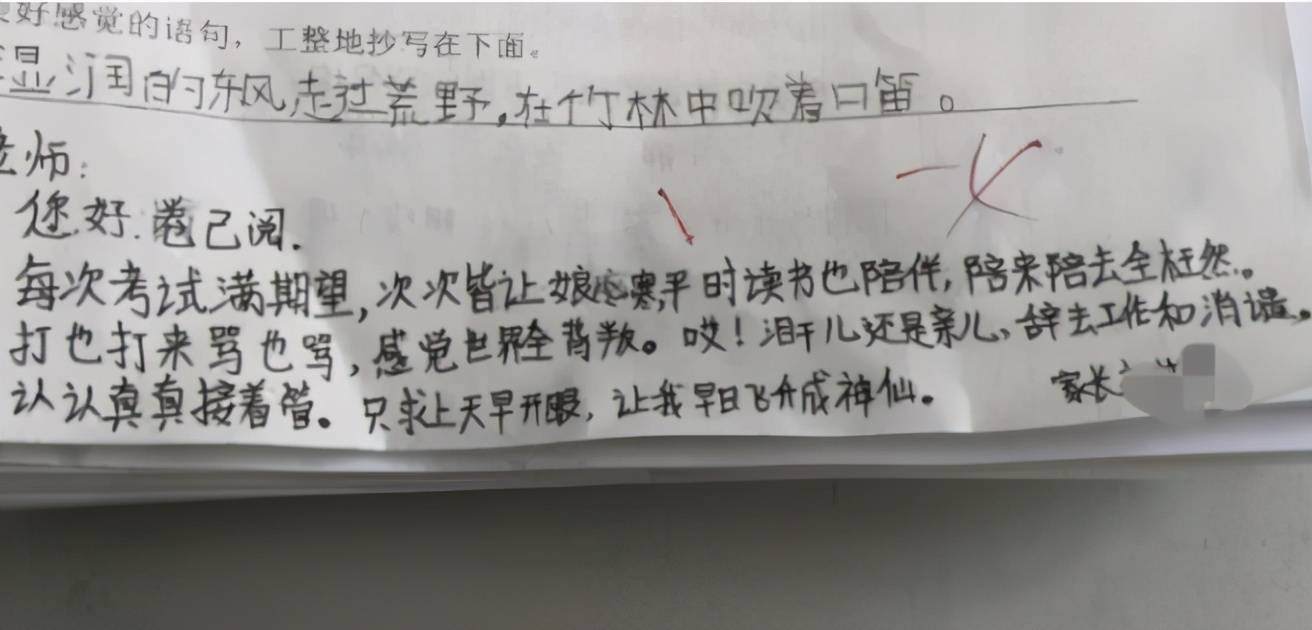 好感觉的语句，工整地抄写在下面。
湿润的东风走过荒野，在竹林中吹着口笛。
老师：
您好.卷已阅.
每次考试满期望，次次皆让娘心寒，平时读书也陪伴，陪来陪去全枉然。
打也打来骂也骂，感觉世界全背叛。哎！泪干儿还是亲儿，辞去工作和消遣。
认认真真接着管。只求上天早开眼，让我早日飞升成神仙。
家长：